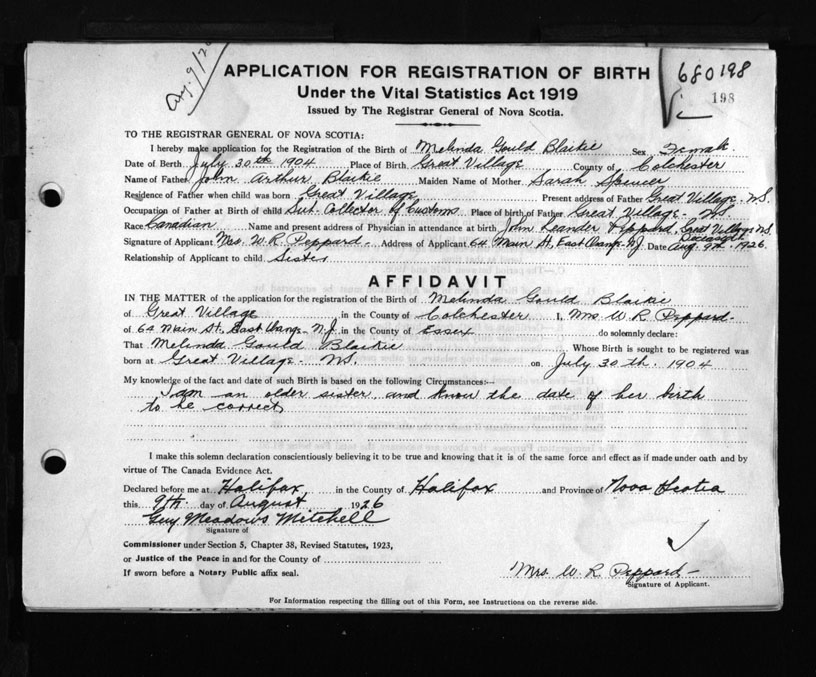 Aug. 9/26
680198
198
APPLICATION FOR REGISTRATION OF BIRTH
Under the Vital Statistics Act 1919
Issued by The Registrar General of Nova Scotia.
TO THE REGISTRAR GENERAL OF NOVA SCOTIA:
I hereby make application for the Registration of the Birth of Melinda Gould Blaikie Sex Female
Date of Berth July 30th 1904 Place of Birth Great Village County of Colchester
Name of Father John Arthur Blaikie Maiden Name of Mother Sarah Spencer
Residence of Father when child was born Great Village Present address of Father Great Village - N.S.
Occupation of Father at Birth of child Sub. Collector of Customs Place of birth of Father Great Village - N.S.
Race Canadian Name and present address of Physician in attendance at birth John Leander Peppard, Great Village N.S.
Deceased
Signature of Applicant Mrs. W. R. Peppard Address of Applicant 64 Main St, East Orange N.J. Date Aug. 9th, 1926
Relationship of Applicant to child Sister
AFFIDAVIT
IN THE MATTER of the application for the registration of the Birth of Melinda Gould Blaikie
of Great Village in the County of Colchester I, Mrs W. R. Peppard
of 64 Main St, East Orange - N.J. in the County of Essex do solemnly declare:
That Melinda Gould Blaikie Whose Birth is sought to be registered was
born at Great Village - N.S. on July 30th. 1904
My knowledge of the fact and date of such Birth is based on the following Circumstances:—
I am an older sister and know the date of her birth
to be correct
I make this solemn declaration conscientiously believing it to be true and knowing that it is of the same force and effect as if made under oath and by
virtue of The Canada Evidence Act.
Declared before me at Halifax in the County of Halifax and Province of Nova Scotia
this 9th. day of August 1926
Guy Meadows Mitchell
Signature of
Commissioner under Section 5, Chapter 38, Revised Statutes, 1923,
or Justice of the Peace in and for the County of
If sworn before a Notary Public affix seal.
Mrs W. R. Peppard
Signature of Applicant.
For Information respecting the filling out of this Form, see Instructions on the reverse side.